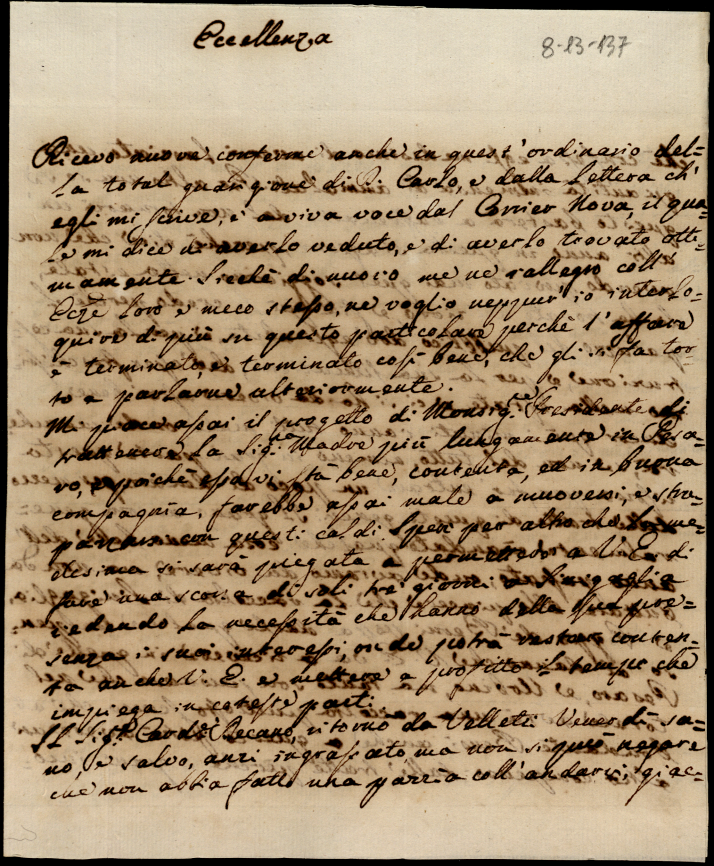 Eccellenza
8-13-137
Ricevo nuove conferme anche in quest' ordinario del=
la total guarigione di D. Carlo, e dalla Lettera ch'
egli mi scrive, e a viva voce dal Corrier Nova, il qua=
le mi dice di averlo veduto, e di averlo trovato otti=
mamente. Sicchè di nuovo me ne rallegro coll'
Ecc.ze loro e meco stesso, ne voglio neppur' io interlo=
quire di più su questo particolare perchè l'affare
è terminato, e terminato così bene, che gli si fa tor=
to a parlarne ulteriormente.
Mi piace assai il progetto di Monsig.re Presidente di
trattenere la Sig.ra Madre più lungamente in Pesa=
ro, e poichè essa vi stà bene, contenta, ed in buona
compagnia, farebbe assai male a muoversi, e stra=
pazzarsi con questi caldi. Spero per altro che la me=
desima si sarà piegata a permettere a V. E. di
fare una scorsa di soli tre giorni a Sinigaglia
vedendo la necessità che hanno della sua pre=
senza i suoi interessi, onde potrà restar conten=
ta anche V. E. e mettere a profitto il tempo che
impiega in coteste parti.
Il Sig.r Card.l Decano, ritornò da Velletri Venerdì sa=
no, e salvo, anzi ingrassato ma non si può negare
che non abbia fatto una pazzia coll'andarvi, giac=